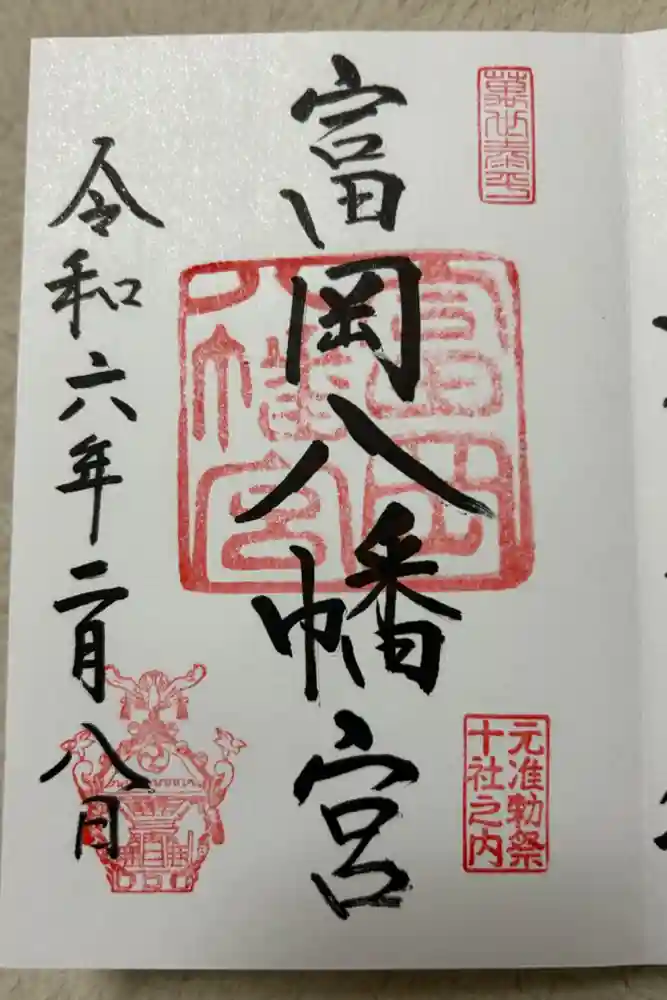 萬世泰平
富岡八幡宮
富岡
八幡宮
元准勅祭
十社之内
令和六年二月八日